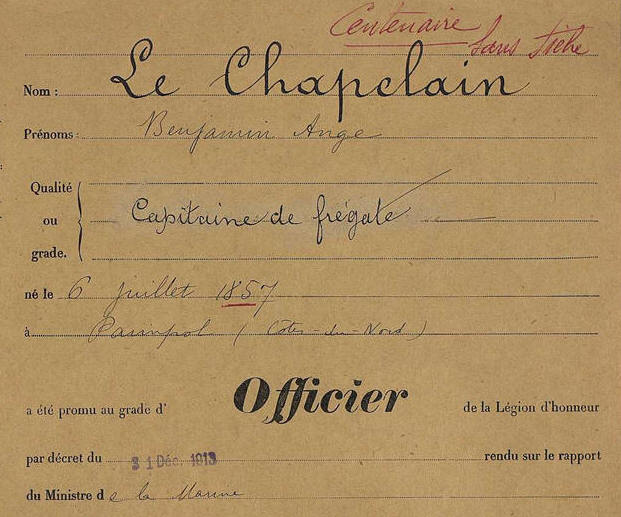 Centenaire
Sans fiche
Nom : Le Chapelain
Prénoms : Benjamin Ange
Qualité
ou
grade.
Capitaine de frégate
né le 6 juillet 1857
à Paimpol (Côtes-du-Nord)
a été promu au grade d' Officier de la Légion d'honneur
par décret du 31 Déc. 1913 rendu sur le rapport
du Ministre de la Marine